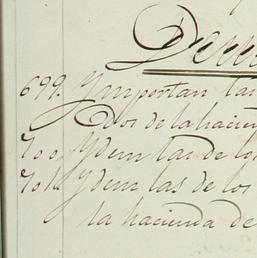 699. Ymportan las
dos de la hacien
700. Ydem las de los
701. Ydem las de los
la hacienda de